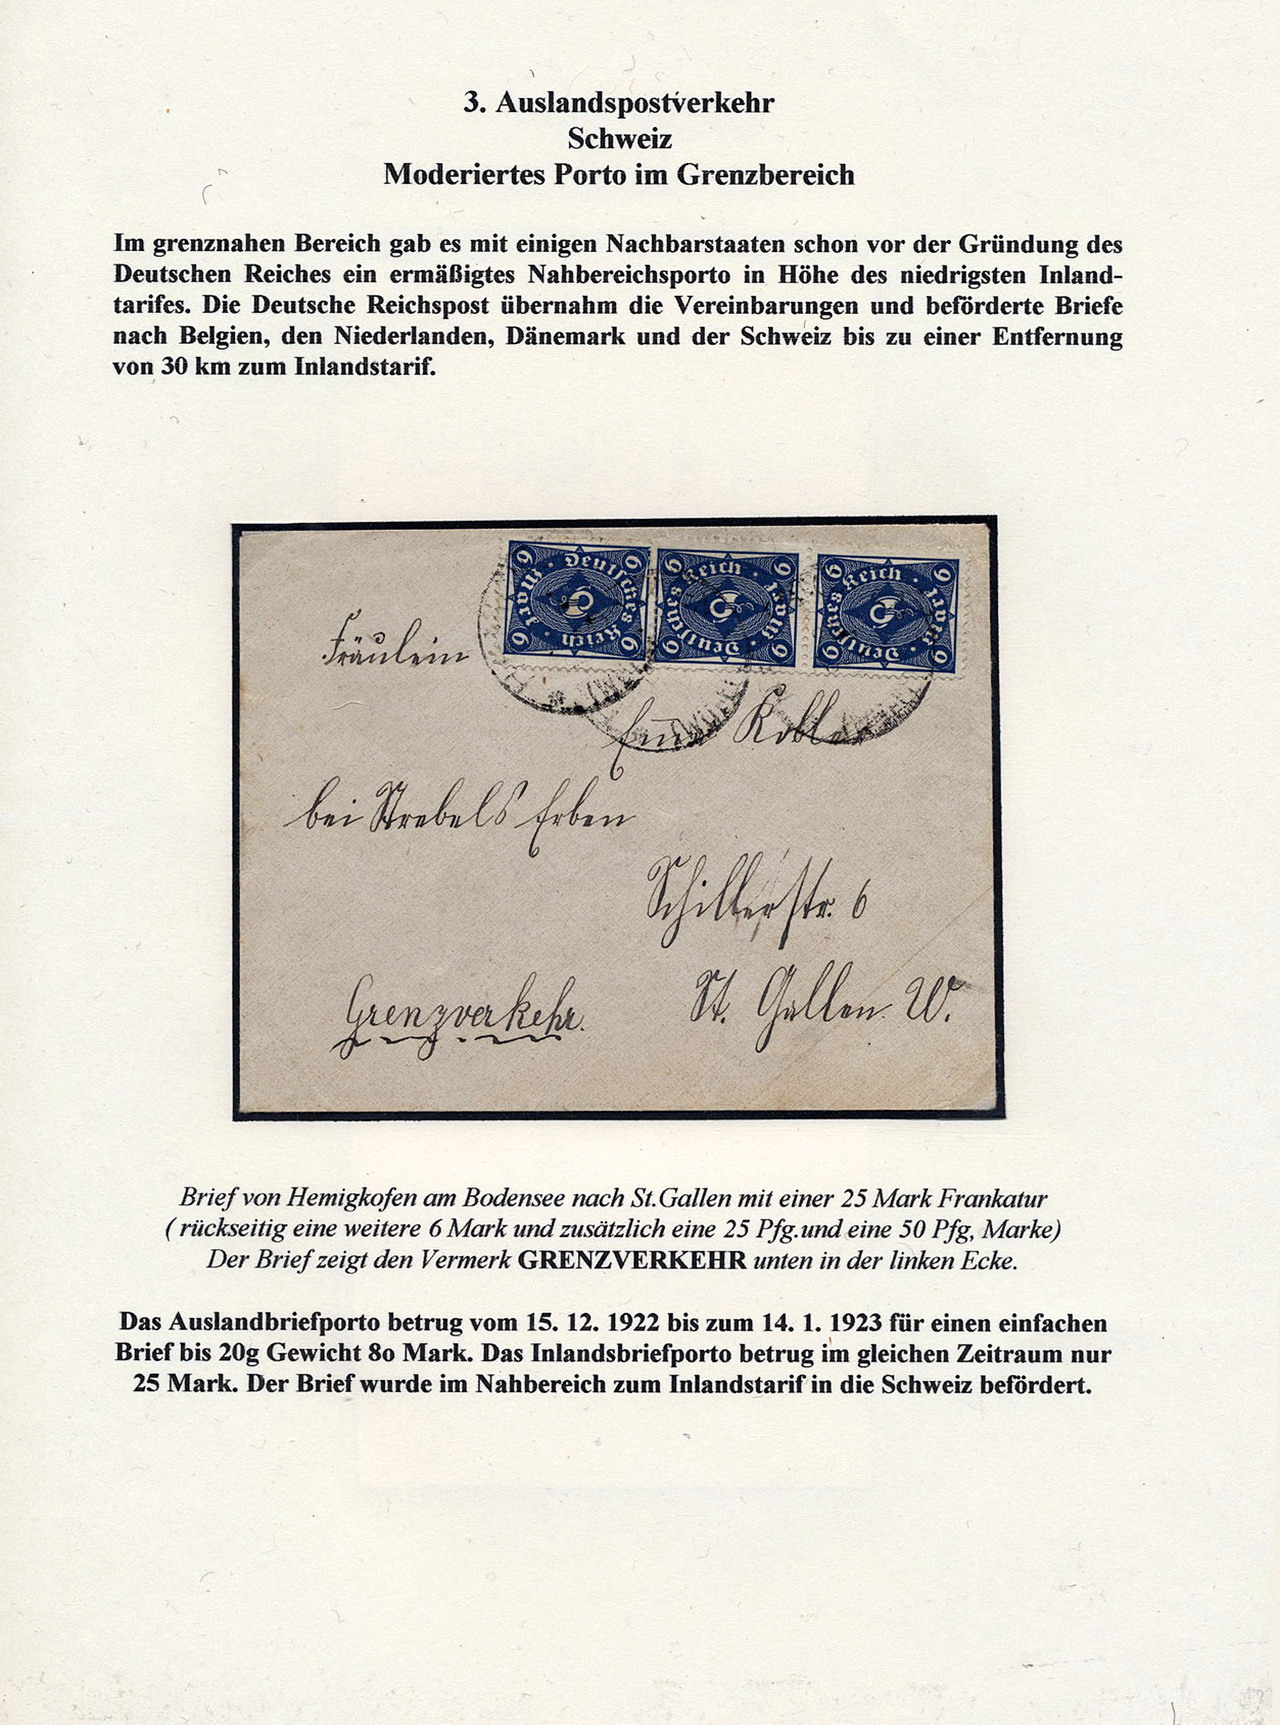 3. Auslandspostverkehr
Schweiz
Moderiertes Porto im Grenzbereich
Im grenznahen Bereich gab es mit einigen Nachbarstaaten schon vor der Gründung des
Deutschen Reiches ein ermäßigtes Nahbereichsporto in Höhe des niedrigsten Inland-
tarifes. Die Deutsche Reichspost übernahm die Vereinbarungen und beförderte Briefe
nach Belgien, den Niederlanden, Dänemark und der Schweiz bis zu einer Entfernung
von 30 km zum Inlandstarif.
6 6 Deutsches Reich · Mark · 6 6
6 6 Deutsches Reich · Mark · 6 6
6 6 Deutsches Reich · Mark · 6 6
Fräulein
Kobler
bei Strebels Erben
Schillerstr. 6
St. Gallen W.
Grenzverkehr.
Brief von Hemigkofen am Bodensee nach St.Gallen mit einer 25 Mark Frankatur
( rückseitig eine weitere 6 Mark und zusätzlich eine 25 Pfg.und eine 50 Pfg, Marke)
Der Brief zeigt den Vermerk GRENZVERKEHR unten in der linken Ecke.
Das Auslandbriefporto betrug vom 15. 12. 1922 bis zum 14. 1. 1923 für einen einfachen
Brief bis 20g Gewicht 8o Mark. Das Inlandsbriefporto betrug im gleichen Zeitraum nur
25 Mark. Der Brief wurde im Nahbereich zum Inlandstarif in die Schweiz befördert.